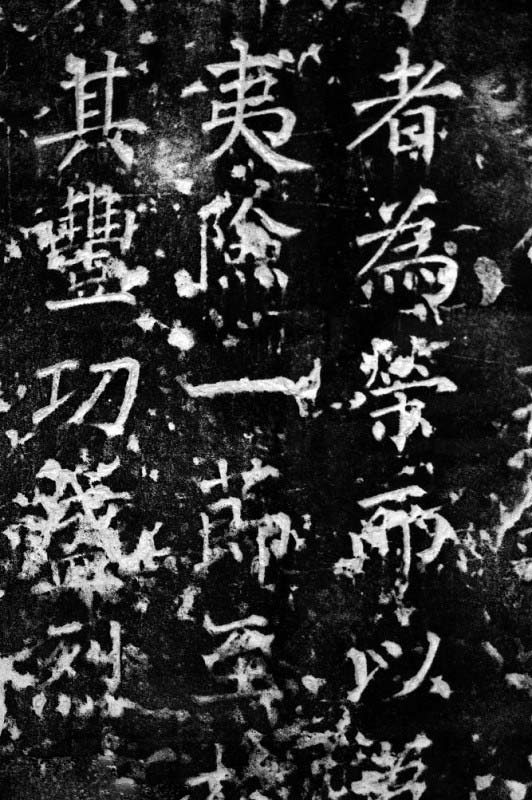 者為榮而以
夷險一節至
其豐功盛烈